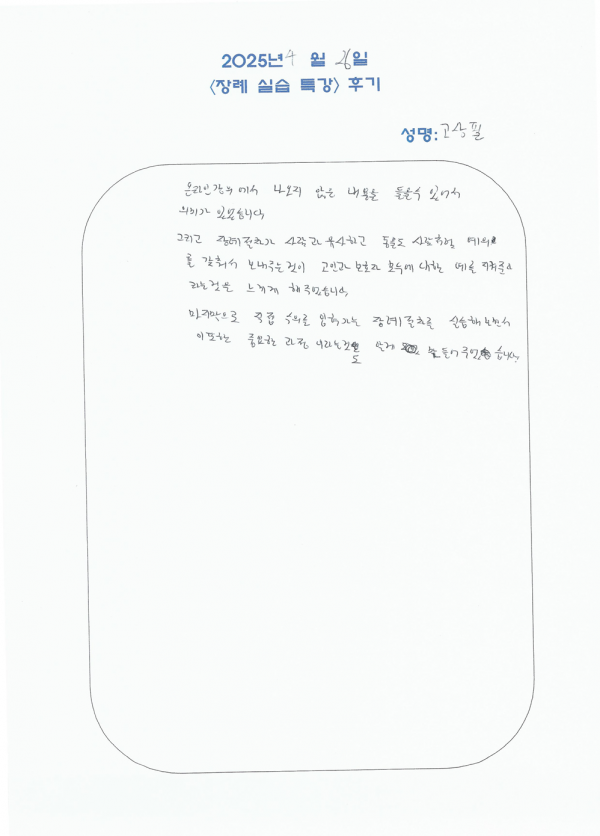 2025년 4 월 26일
<장례 실습 특강> 후기
성명: 고상필
온라인강의 에서 나오지 않은 내용을 들을수 있어서
의미가 있었습니다
그리고 장례절차가 사람과 똑같하고 동물도 사람처럼 예의
를 갖춰서 보내주는것이 고인과 보호자 모두에 대한 예를
라는것을 느끼게 해주었습니다
마지막으로 직접 수의를 입혀가는 장례절차를 실습해보면서
이또한 중요한 과정 이라는것도 알게 만들어주었습니다.